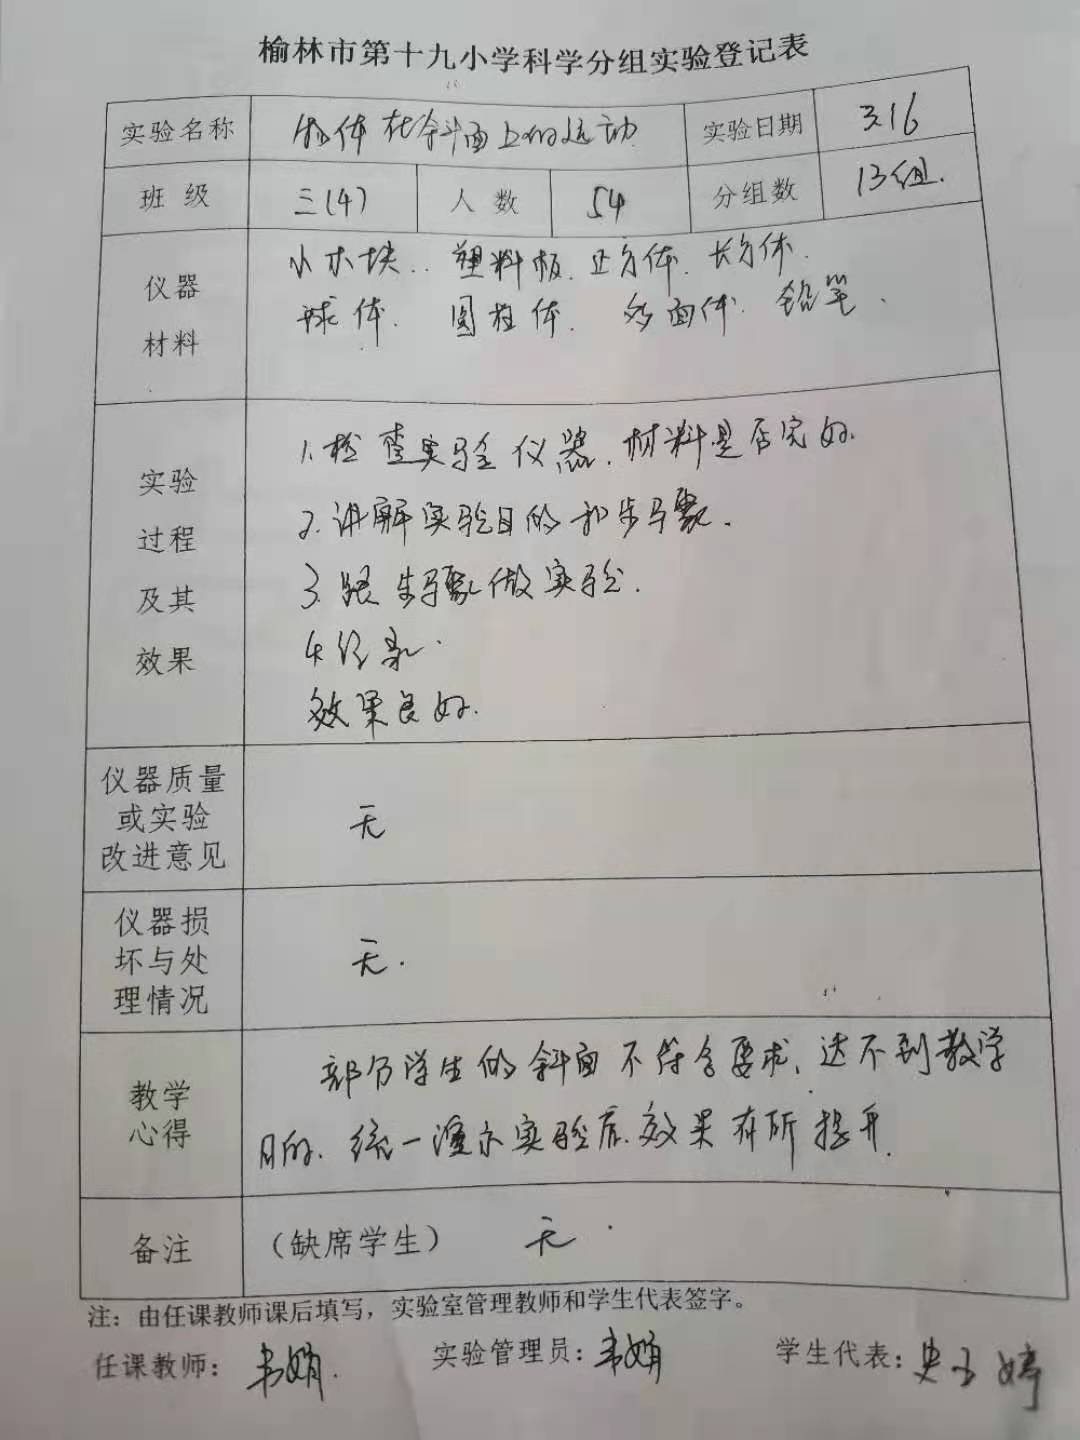 榆林市第十九小学科学分组实验登记表
实验名称 物体在斜面上的运动 实验日期 3.16
班 级 三(4) 人 数 54 分组数 13组.
仪器
材料
小木块. 塑料板. 正方体. 长方体.
球体. 圆柱体. 多面体. 铅笔.
实验
过程
及其
效果
1.检查实验仪器.材料是否完好.
2.讲解实验目的和步骤.
3.跟步骤做实验.
4.记录.
效果良好.
仪器质量
或实验
改进意见
无
仪器损
坏与处
理情况
无.
教学
心得
部分学生的斜面不符合要求,达不到教学
目的.统一演示实验后.效果有所提升.
备注 (缺席学生) 无.
注：由任课教师课后填写，实验室管理教师和学生代表签字。
任课教师：韦娟. 实验管理员：韦娟 学生代表：史子婷